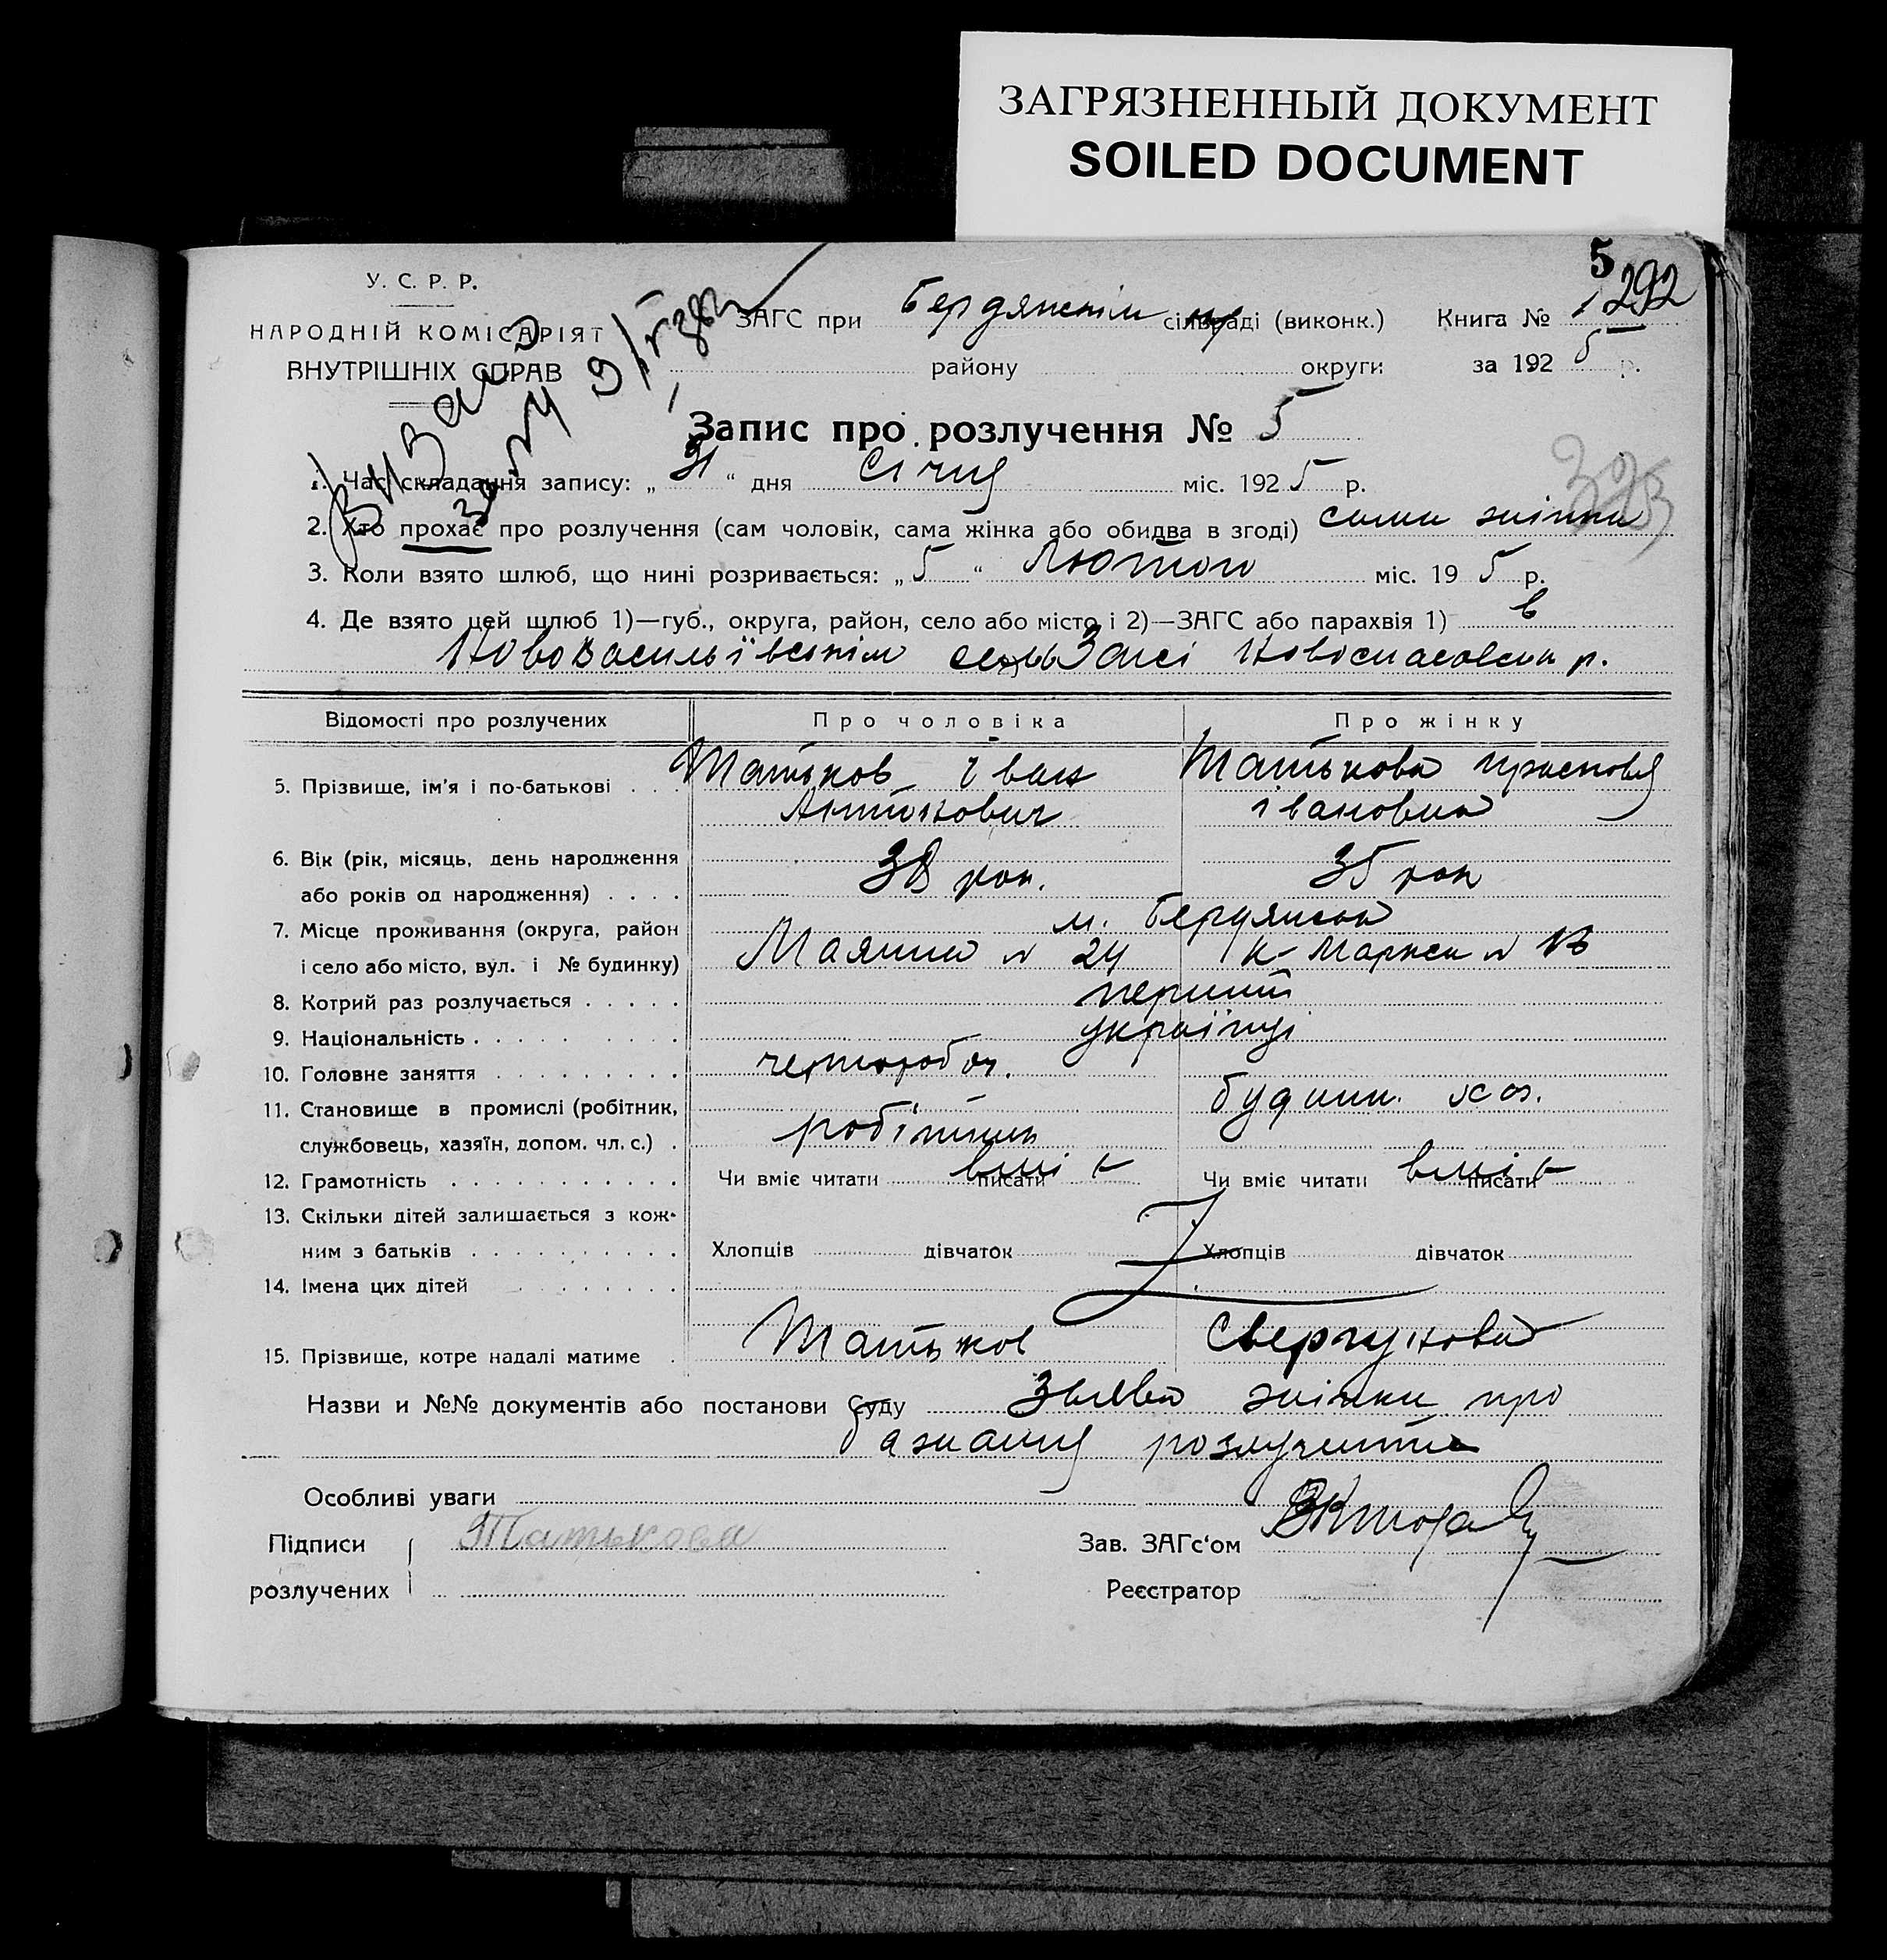 ЗАГРЯЗНЕННЫЙ ДОКУМЕНТ
SOILED DOCUMENT
5
292
У. С. Р. Р.
НАРОДНІЙ КОМІСАРІЯТ
ВНУТРІШНІХ СПРАВ
ЗАГС при Бердянськім сільраді (виконк.) Книга № 1
району округи за 192 5 р.
Запис про розлучення № 5
1. Час складання запису: „ 31 “ дня Січня міс. 192 5 р.
2. Хто прохає про розлучення (сам чоловік, сама жінка або обидва в згоді) сама жінка
3. Коли взято шлюб, що нині розривається: „ 5 “ Лютого міс. 19 5 р.
4. Де взято цей шлюб 1)—губ., округа, район, село або місто і 2)—ЗАГС або парахвія 1) в
НовоВасильївськім Загсі Новоспасовськ р.
Відомості про розлучених Про чоловіка Про жінку
5. Прізвище, ім'я і по-батькові . . . Татьков Іван Татькова Прасковя
Антонович Івановна
6. Вік (рік, місяць, день народження
або років од народження) . . . . 38 рок. 35 рок
7. Місце проживання (округа, район м. Бердянськ
і село або місто, вул. і № будинку) Маячна № 24 К-Маркса №
8. Котрий раз розлучається . . . . . перший
9. Національність . . . . . . . . українці
10. Головне заняття . . . . . . . . . чорнороб
11. Становище в промислі (робітник, будин. хаз.
службовець, хазяїн, допом. чл. с.) . робітник
12. Грамотність . . . . . . . . . . . Чи вміє читати вміє писати Чи вміє читати вміє писати
13. Скільки дітей залишається з кож-
ним з батьків . . . . . . . . . . Хлопців дівчаток Хлопців дівчаток
14. Імена цих дітей . . . . . . . .
15. Прізвище, котре надалі матиме . Татьков Свергунова
Назви и №№ документів або постанови Суду Заява жінки про
бажання розлучитись
Особливі уваги
Підписи Татькова Зав. ЗАГс'ом
розлучених Реєстратор